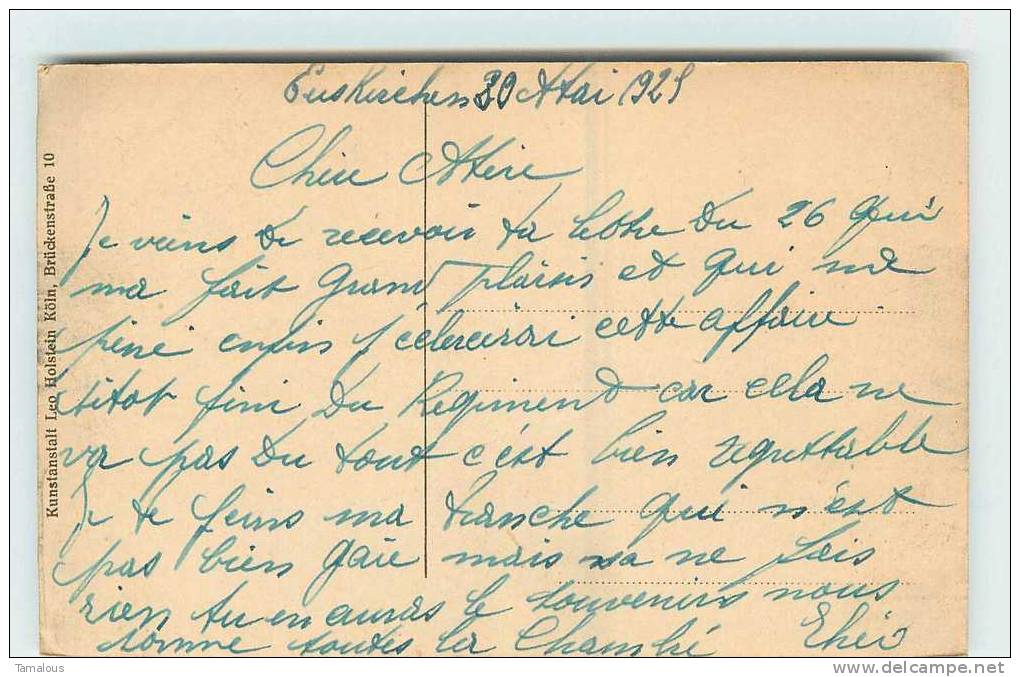 Euskirchen 30 Mai 1925
Chere Mere
Je viens de recevoir ta lettre du 26 qui
ma fait grand plaisir et qui me
peine enfin cette affaire
titot fini du Regiment car cella ne
va pas du tout c'est bien regrettable
Je te ma tranche qui n'est
pas bien gaie mais sa ne fais
rien tu en auras le souvenirs nous
somme toutes la Chambré
Kunstanstalt Leo Holstein Köln, Brückenstraße 10
Tamalous
http://www.delcampe.net